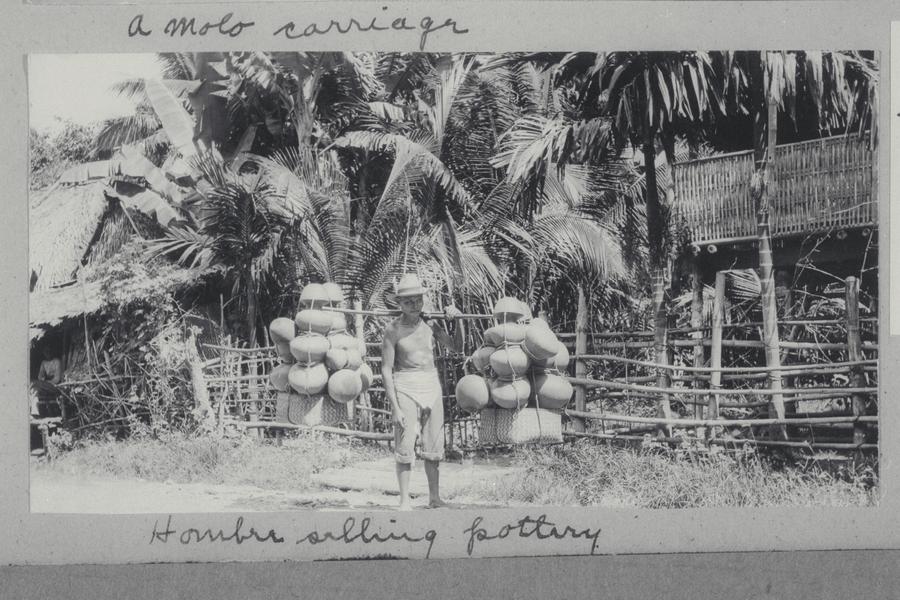 a Molo carriage
Hombre selling pottery